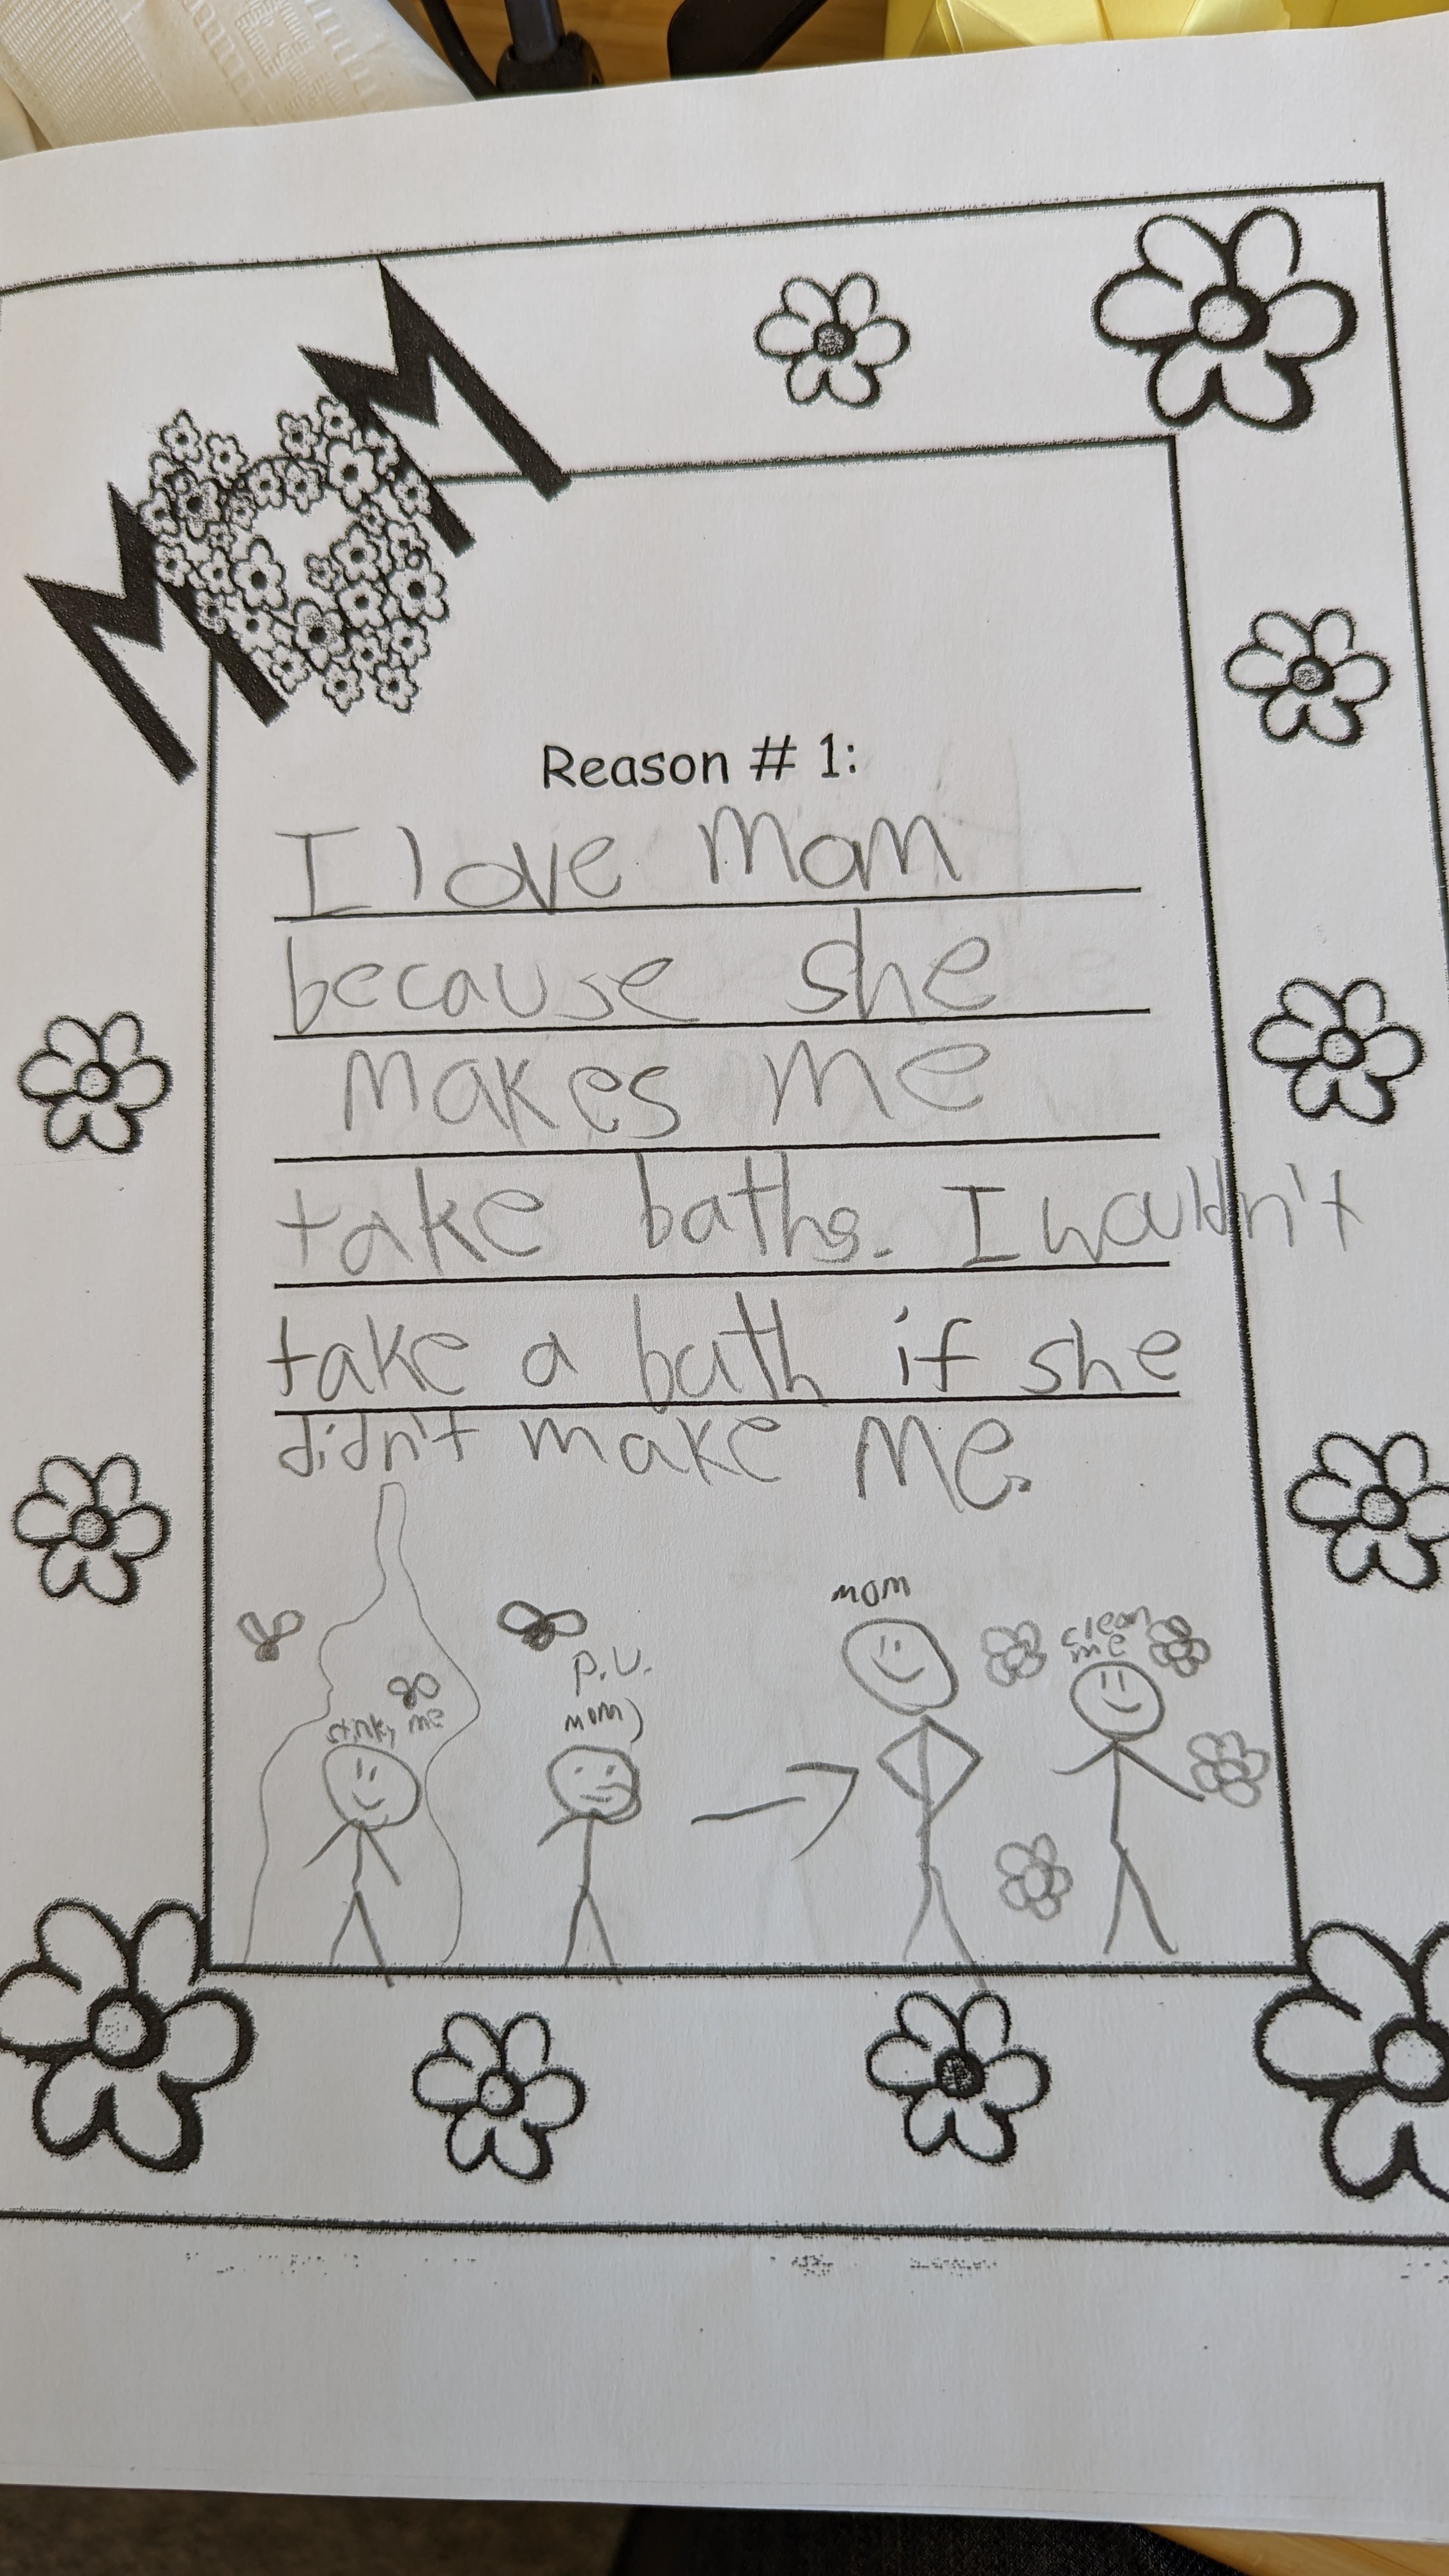 MOM
Reason # 1:
I love mom
because she
makes me
take baths. I wouldn't
take a bath if she
didn't make me.
mom
clean
me
P.U.
stinky me
mom